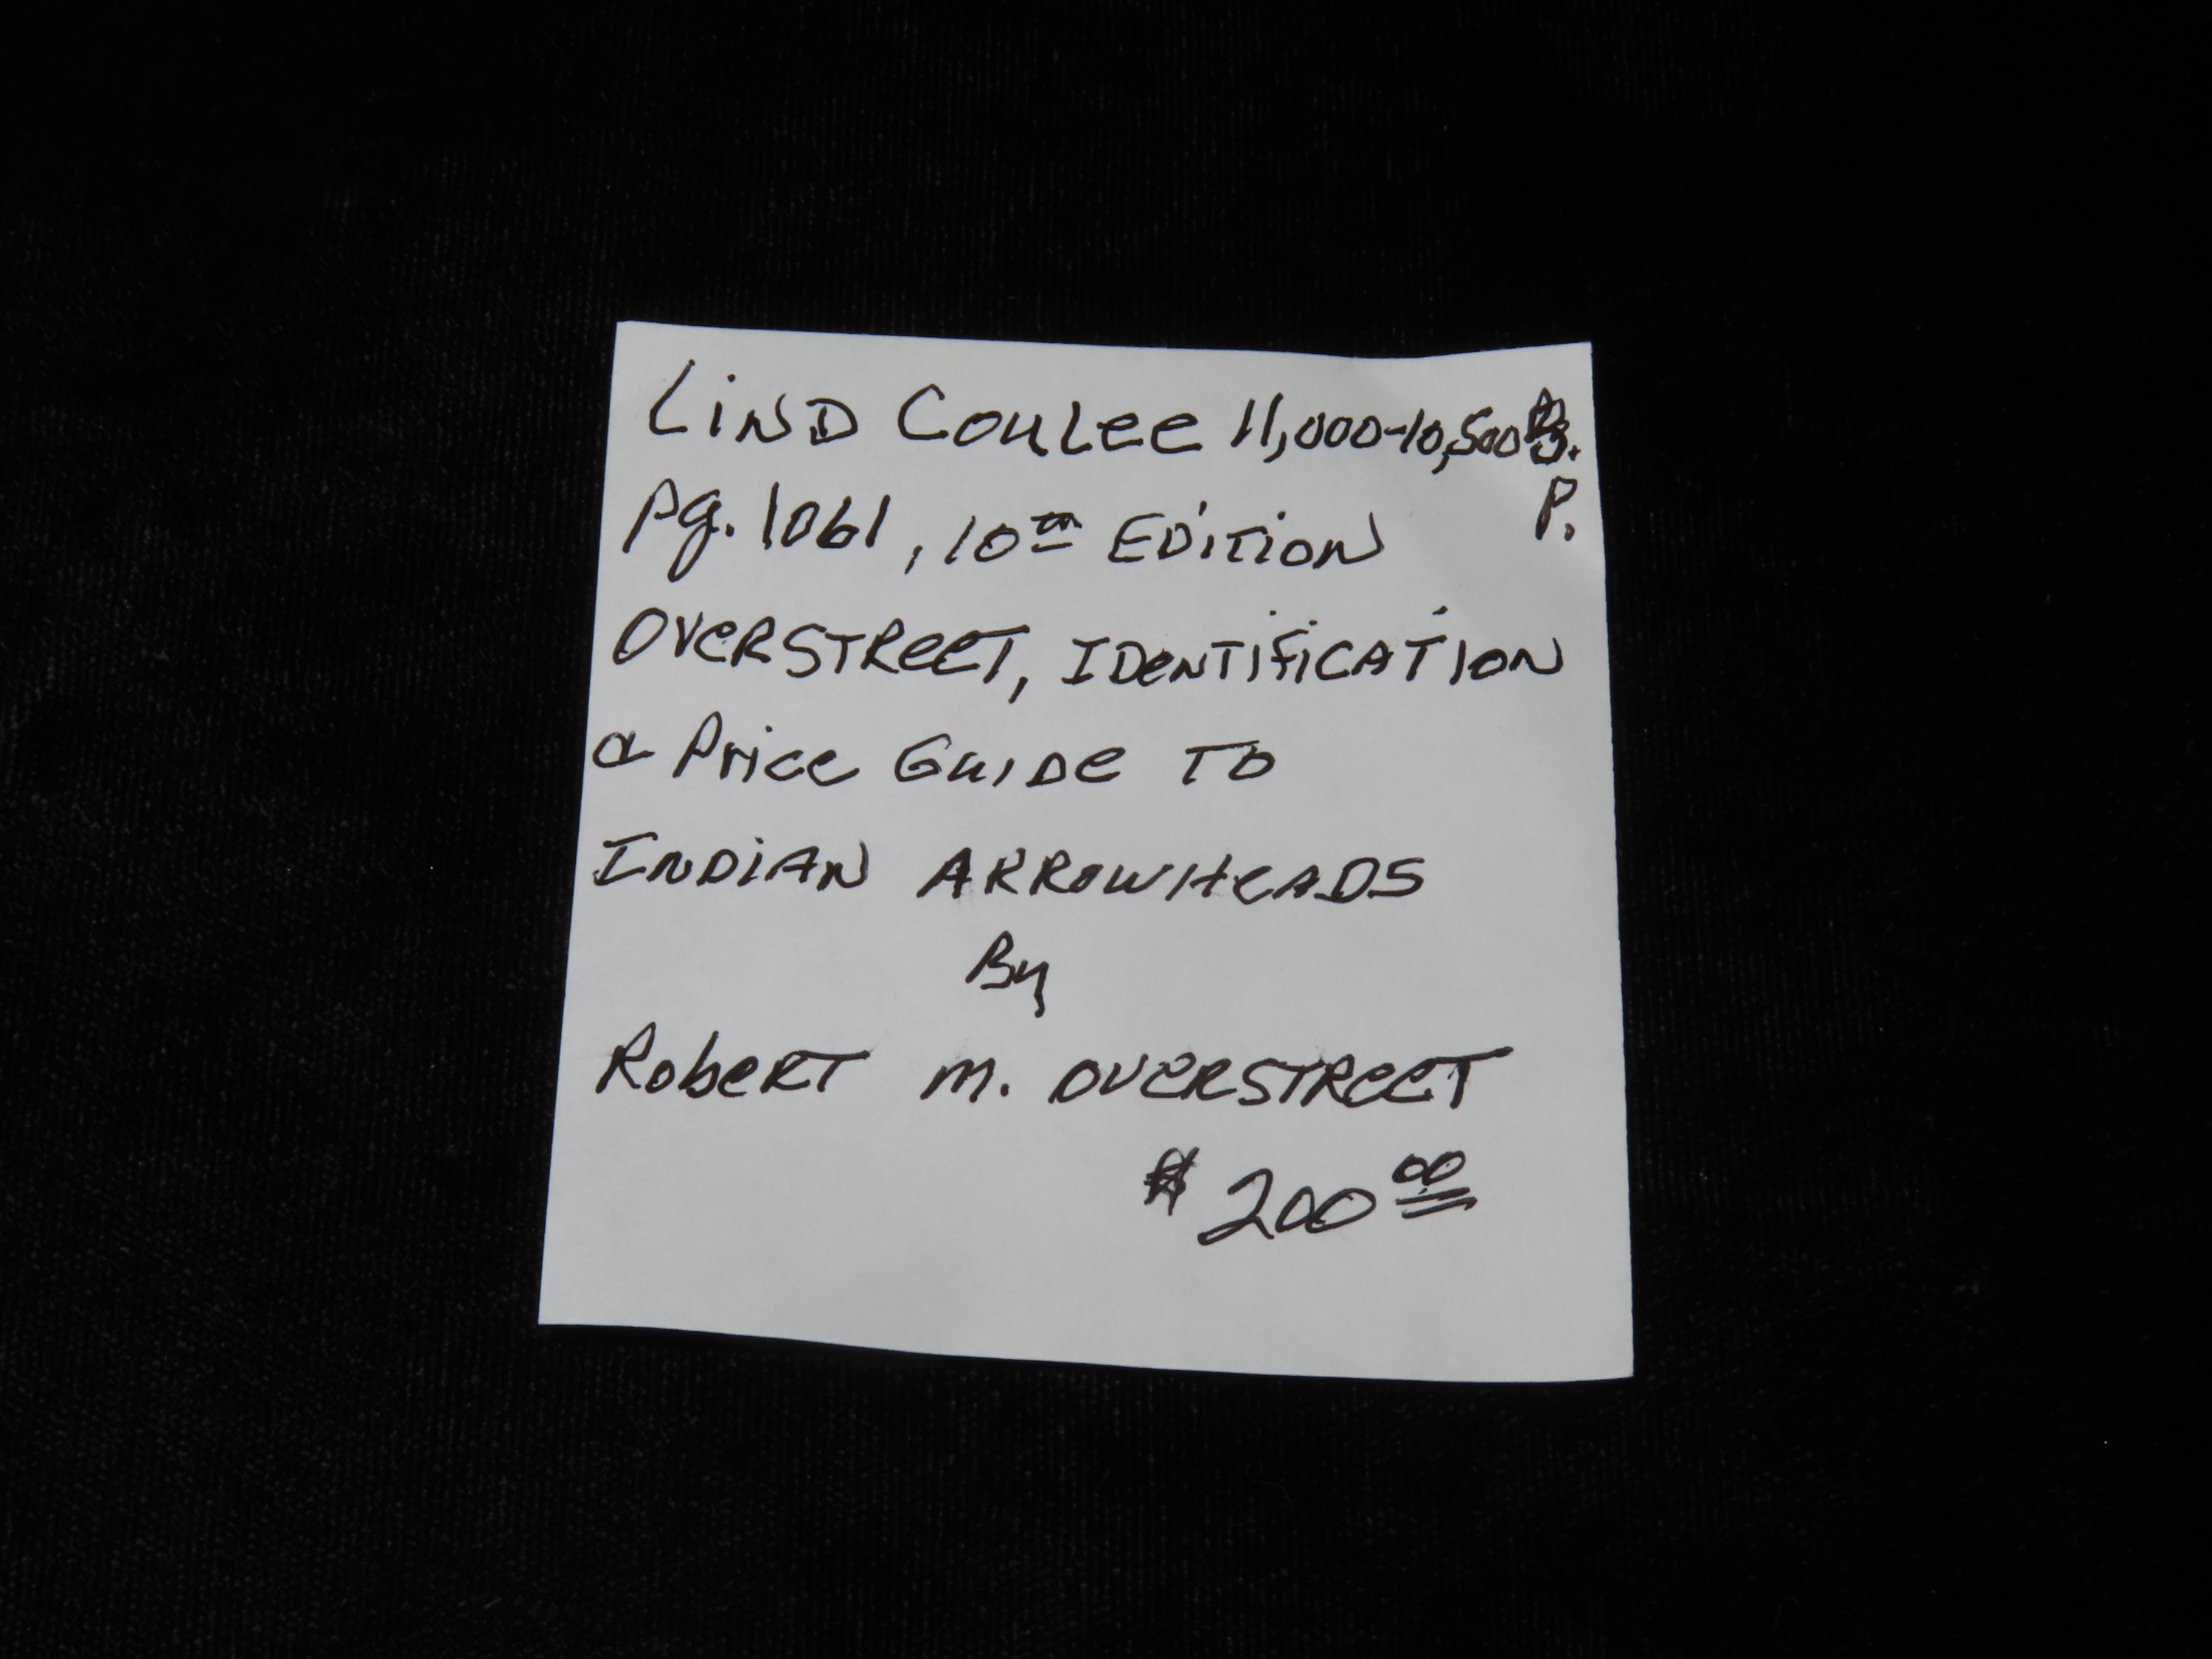 LIND COULEE 11,000-10,500 B.
P.
Pg. 1061, 10th EDITION
OVERSTREET, IDENTIFICATION
& Price GUIDE TO
INDIAN ARROWHEADS
By
ROBERT M. OVERSTREET
$ 200 00